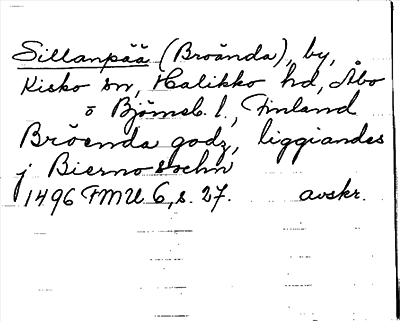 Sillanpää (Broända), by,
Kisko sn, Halikko hd, Åbo
o Björneb. l., Finland
Bröenda godz, liggiandes
j Bierno sochn
1496 FMU 6, s. 27. avskr.